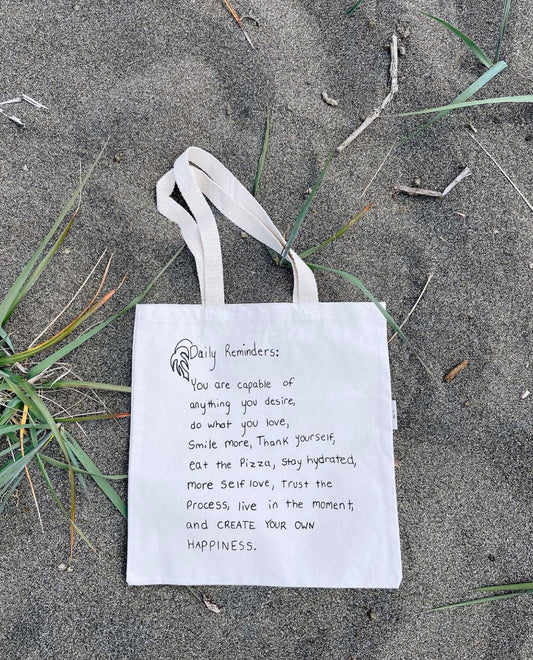 Daily Reminders:
You are capable of
anything you desire,
do what you love,
Smile more, Thank yourself,
eat the Pizza, stay hydrated,
more self love, Trust the
Process, live in the moment,
and CREATE YOUR OWN
HAPPINESS.